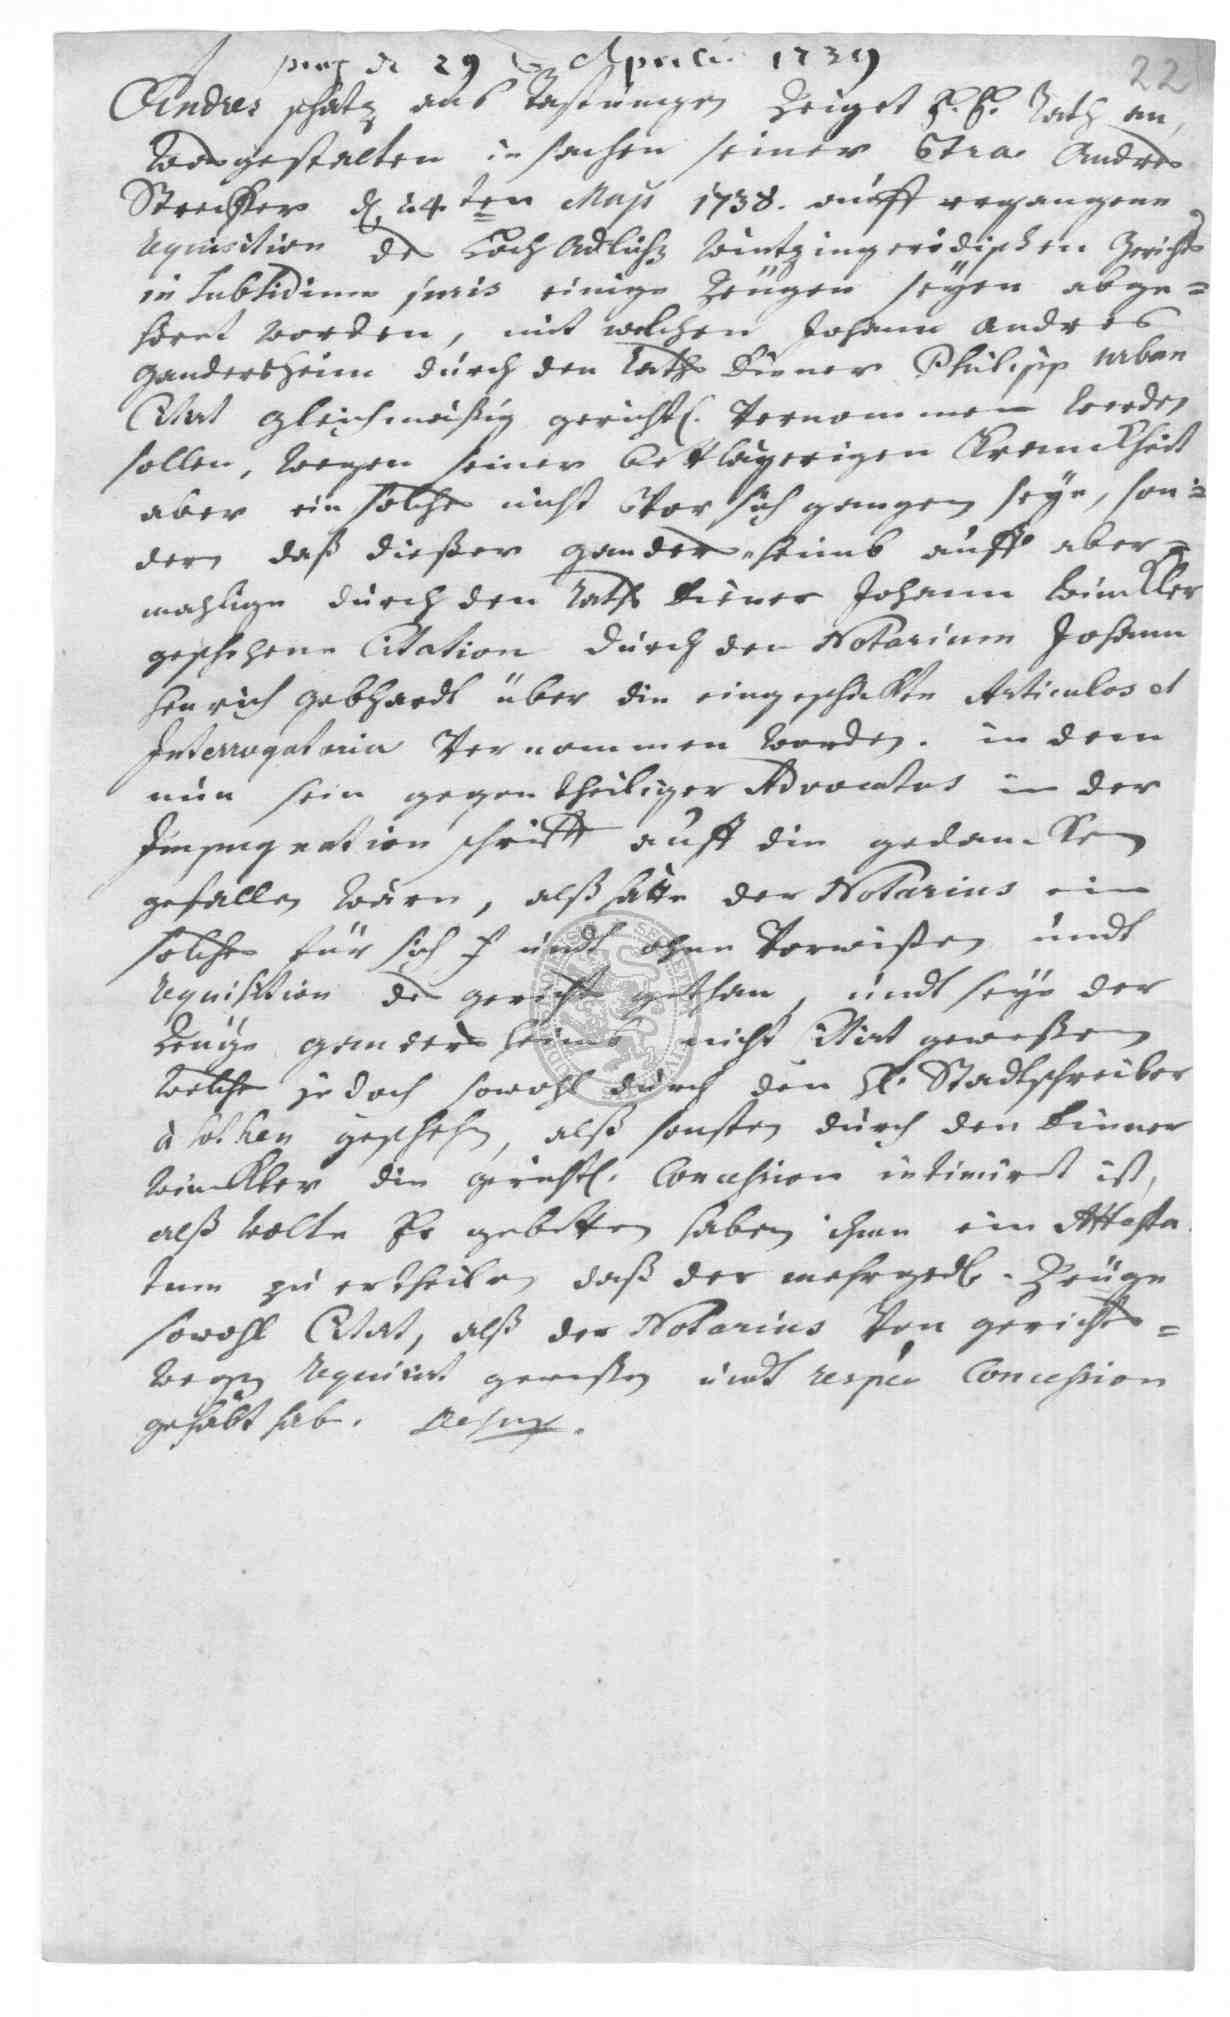 den 29 Aprilis 1739
22
Andres schatz aus Tastungen Zeiget E. E. Rath an,
Wasgestalten in sachen seiner Ctra Andres
Strecker d. 24ten Maji 1738. auff ergangene
requisition des Hoch Adlich Wintzingerodischen Gerichts
in subsidium juris einige Zeugen seyen abge=
hört worden, mit welchen Johann Andres
Gandersheim durch den Raths Diener Philipp Urban
Citirt gleichmäßig gerichtl. Vernommen werden
sollen, wegen seiner bettlägerigen Kranckheit
aber ein solches nicht Vor sich gangen seye, son=
dern daß dießer Gandersheimb auff aber=
mahlige durch den Raths Diener Johann Winckler
geschehene Citation durch den Notarium Johann
Henrich Gebhardt über die eingeschickte Articulos et
Interrogatoria Vernommen worden. in dem
nun sein gegentheiliger Advocatus in der
Impugnation schrifft auff die gedancken
gefallen wären, alß hätte der Notarius ein
solches für sich undt ohne Vorwißen undt
requisition des gerichts gethan, undt seye der
Zeuge Gandersheimb nicht citirt geweßen
welches jedoch sowohl durch den H. Stadtschreiber
geschehen, alß sonsten durch den Diener
Winckler die gerichtl. Concession intimirt ist,
alß wolte Er gebetten haben ihme ein Attesta
tum zu ertheilen daß der mehrgedl. Zeuge
sowohl Citirt, alß der Notarius Von gerichts=
wegen requirirt geweßen undt respec Concession
gehabt hab.